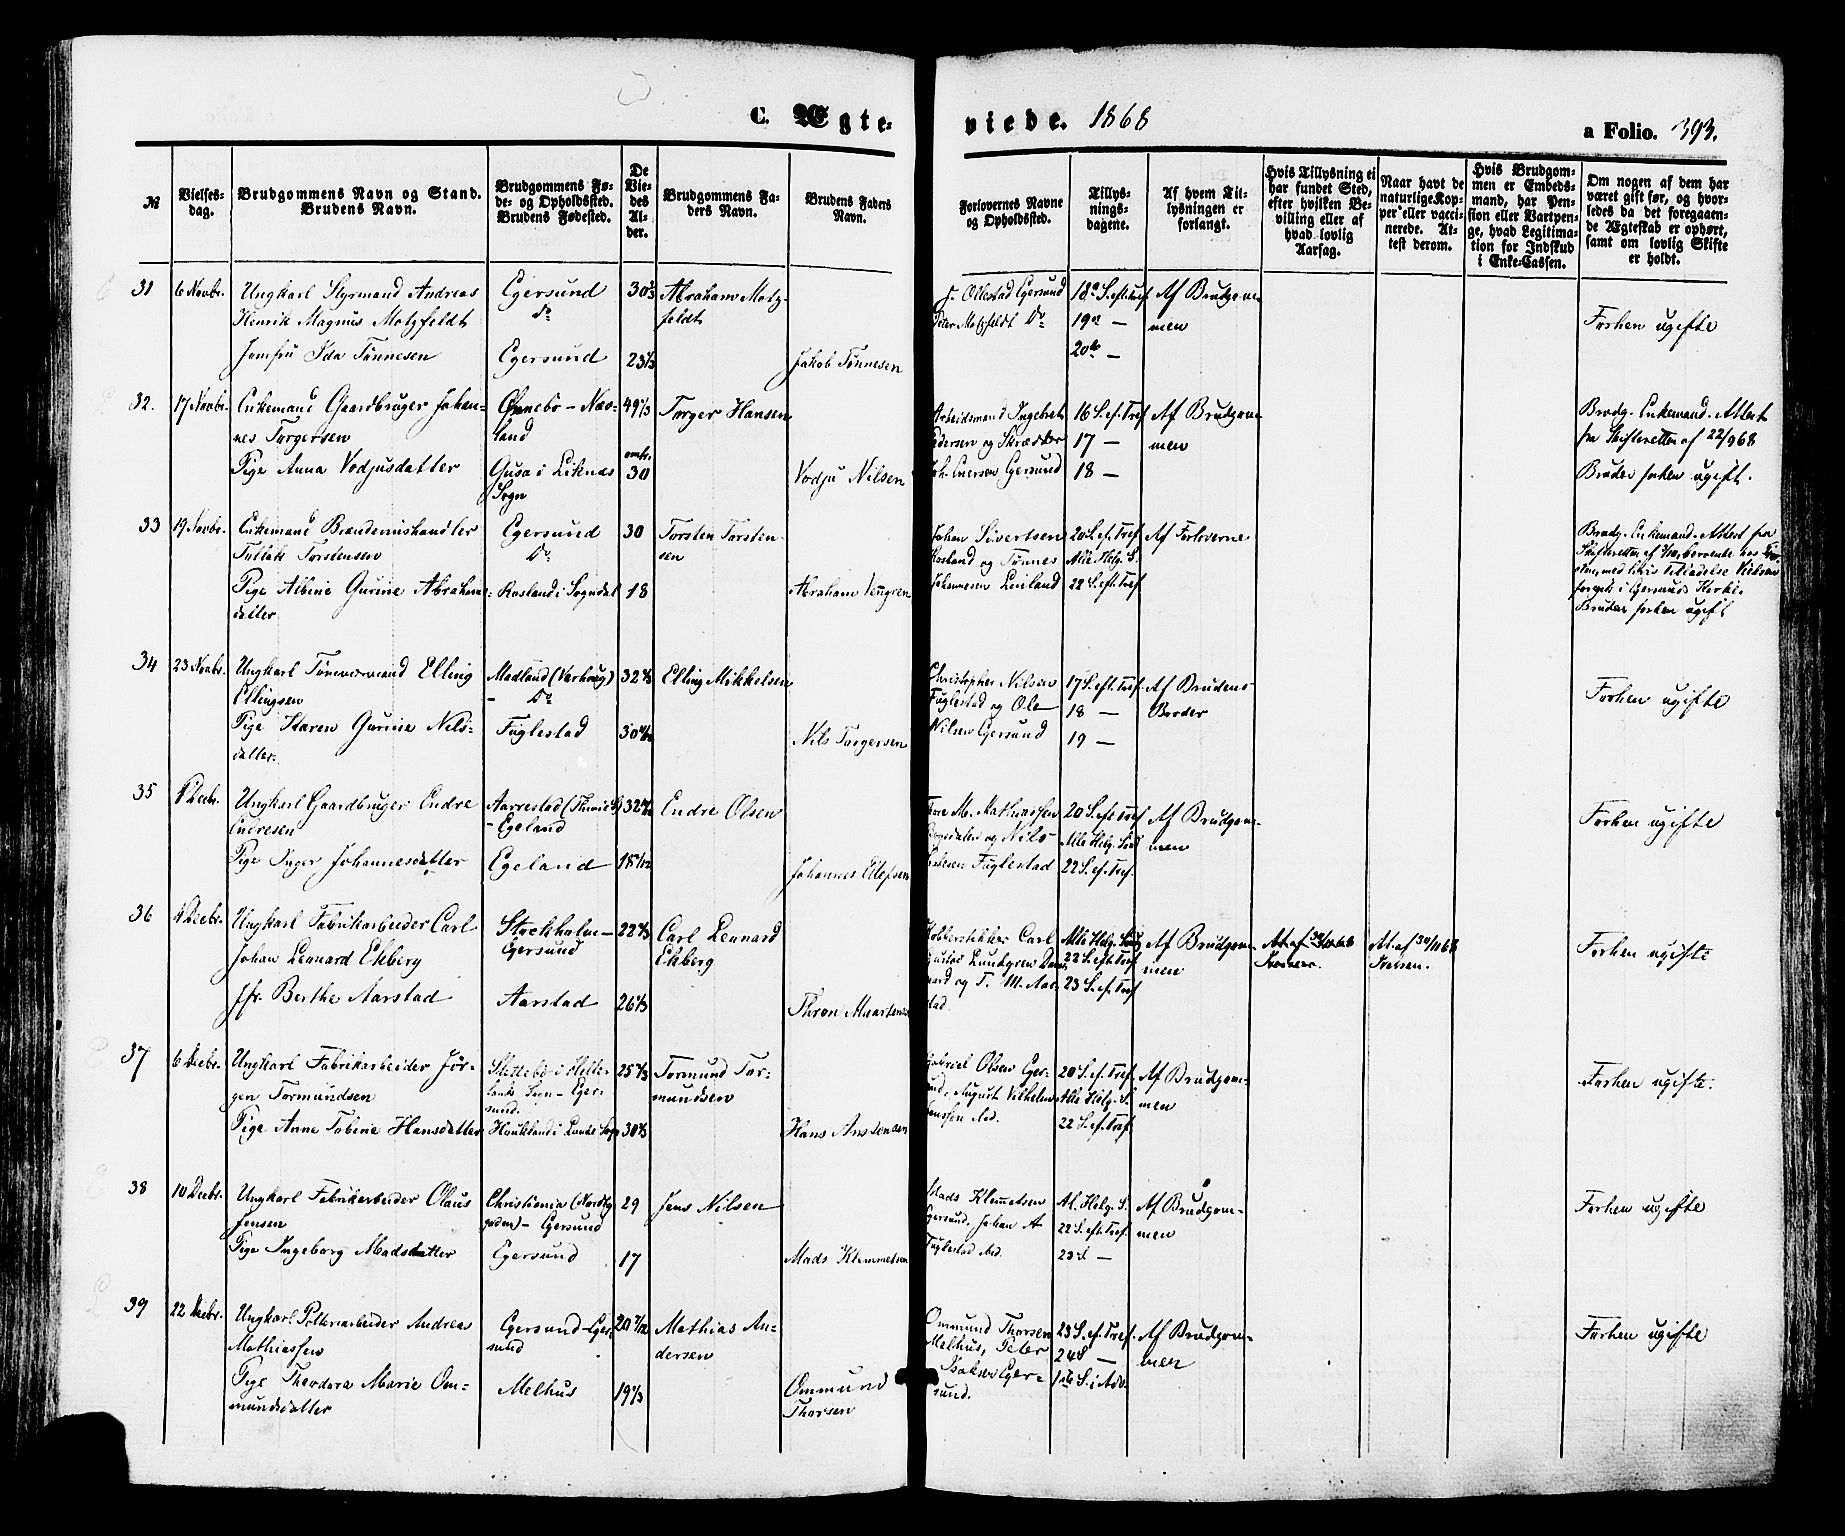 C. Ægte- viede. 1868
a Folio. 393.
№
Vielses-
dag.
Brudgommens Navn og Stand.
Brudens Navn.
Brudgommens Fø-
de- og Opholdssted.
Brudens Fødested.
De
Vie-
des
Al-
der.
Brudgommens Fa-
ders Navn.
Brudens Faders
Navn.
Forlovernes Navne
og Opholdssted.
Tillys-
nings-
dagene.
Af hvem Til-
lysningen er
forlangt.
Hvis Tillysning ei
har fundet Sted,
efter hvilken Be-
villing eller af
hvad lovlig
Aarsag.
Naar havt de
naturlige Kop-
per eller vacci-
nerede. At-
test derom.
Hvis Brudgom-
men er Embeds-
mand, har Pen-
sion eller Vartpen-
ge, hvad Legitima-
tion for Indskud
i Enke-Cassen.
Om nogen af dem har
været gift før, og hvor-
ledes da det foregaaen-
de Ægteskab er ophørt,
samt om lovlig Skifte
er holdt.
31
6 Novbr.
Ungkarl Styrmand Andreas
Henrik Magnus Motzfeldt
Jomfru Ida Tønnesen
Egersund
Do
Egersund
Abraham Motz-
feldt
Jakob Tønnesen
Ollestad Egersund
Peter Motzfeldt Do
Af Brudgom-
men
Forhen ugifte
32.
17 Novbr.
Enkemand Gaardbruger Johan-
nes Torgersen
Pige Anna Vodjusdatter
land
Gusa i Liknas
Sogn
49
omtr.
30
Torger Hansen
Vodju Nilsen
Arbeidsmand Ingebret
Pedersen og Skrædder
Joh. Iversen Egersund
16 S. ef. Tref
17 —
18 —
Af Brudgom-
men
Brudg. Enkemand. Attest
fra Skifteretten af 22/9 68
Bruden forhen ugift.
33
19 Novbr.
Enkemand Brændeviinshandler
Tollak Torstensen
Pige Albine Gurine Abraham-
datter
Egersund
Do
Rosland i Sogndal
30
18
Torsten Torsten-
sen
Abraham
Johan Sivertsen
Rosland og Tønnes
20 S. ef. Tref
Alle Helg. S.
22 S. eft. Tref
Af Forloverne
Brudg. Enkemand. Attest fra
Skifteretten af
i Egersunds Kirke.
Bruden forhen ugift
34
23 Novbr.
Ungkarl Elling
Ellingsen
Pige Karen Gurine Nils-
datter.
Madland (Varhoug)
- Do
Fuglestad
Elling Mikkelsen
Nils Torgersen
Christopher Nilsen
Fuglestad og Ole
Nilsen Egersund
17 S. eft. Tref
18 —
19 —
Af Brudens
Broder
Forhen ugifte
35
Decbr.
Ungkarl Gaardbruger Endre
Endresen
Pige Inger Johannesdatter
Aarrestad
- Egeland
Egeland
Endre Olsen
Johannes Ellefsen
M. Mathiassen
og Nils
Fuglestad
20 S. eft Tref
Alle Helg. Sønd
22 S. ef. Tref.
Af Brudgom-
men
Forhen ugifte
36
Decbr.
Ungkarl Fabrikarbeider Carl
Johan Lennard Ekberg
Jfr. Berthe Aarstad
Stockholm -
Egersund
Aarstad
Carl Lennard
Ekberg
Thron Maartensen
Kobberstikker Carl
Gustav Lundgren
og T. M. Aar-
stad
Alle Helg. Sønd
22 S. eft. Tref
23 S. ef. Tref
Af Brudgom-
men
At. af 30/11 68
At. af 30/11 68
Forhen ugifte
37
6 Decbr.
Ungkarl Fabrikarbeider Jør-
gen Tormundsen
Pige Anne Tobine Hansdatter
Slettebø i Helle-
lands Sogn - Eger-
sund.
Houkland i Lunds Sogn
Tormund Tor-
mundsen
Hans
Gabriel Olsen Eger-
sund, August Vilhelm
20 S. ef. Tref
Alle Helg. S.
22 S. ef. Tref
Af Brudgom-
men
Forhen ugifte.
38
10 Decbr.
Ungkarl Fabrikarbeider Olaus
Jensen
Pige Ingeborg Madsdatter
Christiania
- Egersund
Egersund
29
17
Jens Nilsen
Mads Klemmetsen
Mads Klemmetsen
Egersund, Johan A
Fuglestad ibd.
Al. Helg. S.
22 S. eft. Tref
23 S —
Af Brudgom-
men
Forhen ugifte
39
22 Decbr.
Ungkarl Potteriarbeider Andreas
Mathiassen
Pige Theodora Marie Om-
mundsdatter
Egersund - Eger-
sund
Melhus
Mathias An-
dersen
Ommund
Thorsen
Ommund Thorsen
Melhus, Peter
Isaksen Eger-
sund.
23 S. ef. Tref.
24 S —
1ste S. i Adv.
Af Brudgom-
men
Forhen ugifte